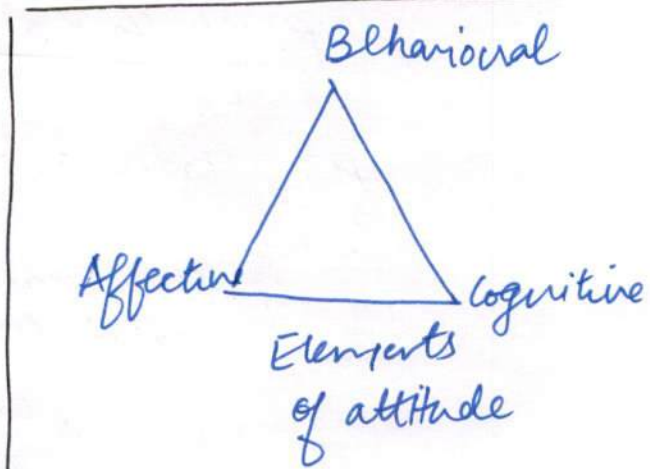 Behavioural
Affective
Cognitive
Elements
of attitude